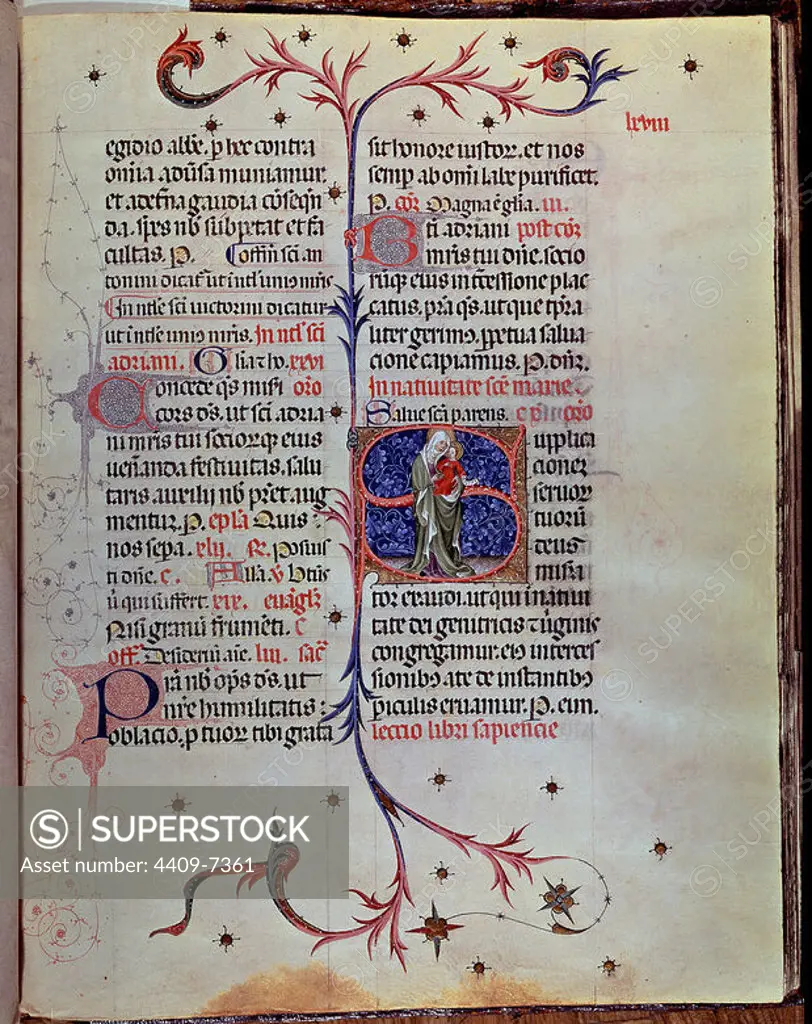 lxviii
egidio abbe. p hec contra
omia adusa muniamur.
et adetna gaudia cōseqn
da. spes nb suppetat et fa
cultas. P. Offm sci an
tonini dicat ut in tle unius mris
In ntle sci victorini dicatur
ut in tle unius mris. In ntl sci
adriani.
Concede qs misri oro
cors ds. ut sci adria
ni mris tui sociorq eius
ueñanda festiuitas. salu
taris auxilij nb pret. aug
mentur. P. epla Quis
nos sepa. xlii. Posuis
ti dne. c. Alla
ū qui suffert. xix. euāgl
Nisi granū frumēti. c
off. Desideriū aīe. liii. sac
Pra nb ops ds. ut
pure humilitatis
oblacio. p tuor tibi grata
sit honore iustor. et nos
semp ab omi labe purificet.
P. cō Magna ē glia. iii.
Bti adriani post cō
mris tui dne. socio
rūq eius intcessione plac
catus. pra qs. ut que tpra
liter gerimo. ppetua salua
cione capiamus. P. dnr.
In natiuitate sce marie
Salue sca parens. oro
Supplica
cioneȝ
seruor
tuorū
deus
misra
tor eraudi. ut qui in natiui
tate dei genitricis et ūginis
congregamur. eius interces
sionibus a te de instantibus
piculis eruamur. P. eun.
leccio libri sapiencie
SUPERSTOCK
Asset number: 4409-7361